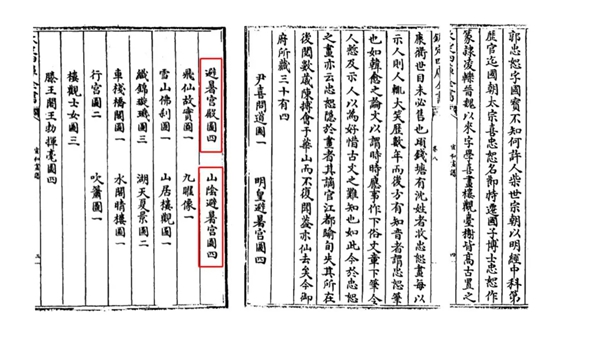 郭忠恕字國寶不知何許人柴世宗朝以明經中科第
歷官迄國朝太宗喜忠恕名節特遷國子博士忠恕作
篆隷凌轢晉魏以來字學喜畫樓觀臺榭皆高古置之
宣和畫譜
卷八
康衢世目未必售也頃錢塘有沈姓者收忠恕畫每以
示人則人輒大笑歷數年而後方有知音者謂忠恕筆
也如韓愈之論文以謂時時應事作下俗文章下筆令
人慙及示人以為好惜古文之難知也如此今於忠恕
之畫亦云忠恕隱於畫者其謫官江都踰旬失其所在
後閱數歲陳摶會于華山而不復聞蓋亦仙去矣今御
府所藏三十有四
尹喜問道圖一 明皇避暑宮圖四
避暑宮殿圖四 山陰避暑宮圖四
飛仙故實圖一 九曜像一
雪山佛刹圖一 山居樓觀圖一
織錦璇璣圖三 湖天夏景圖二
車棧橋閣圖一 水閣晴樓圖一
行宮圖二 吹簫圖一
樓觀士女圖三
滕王閣王勃揮毫圖四
宣和畫譜